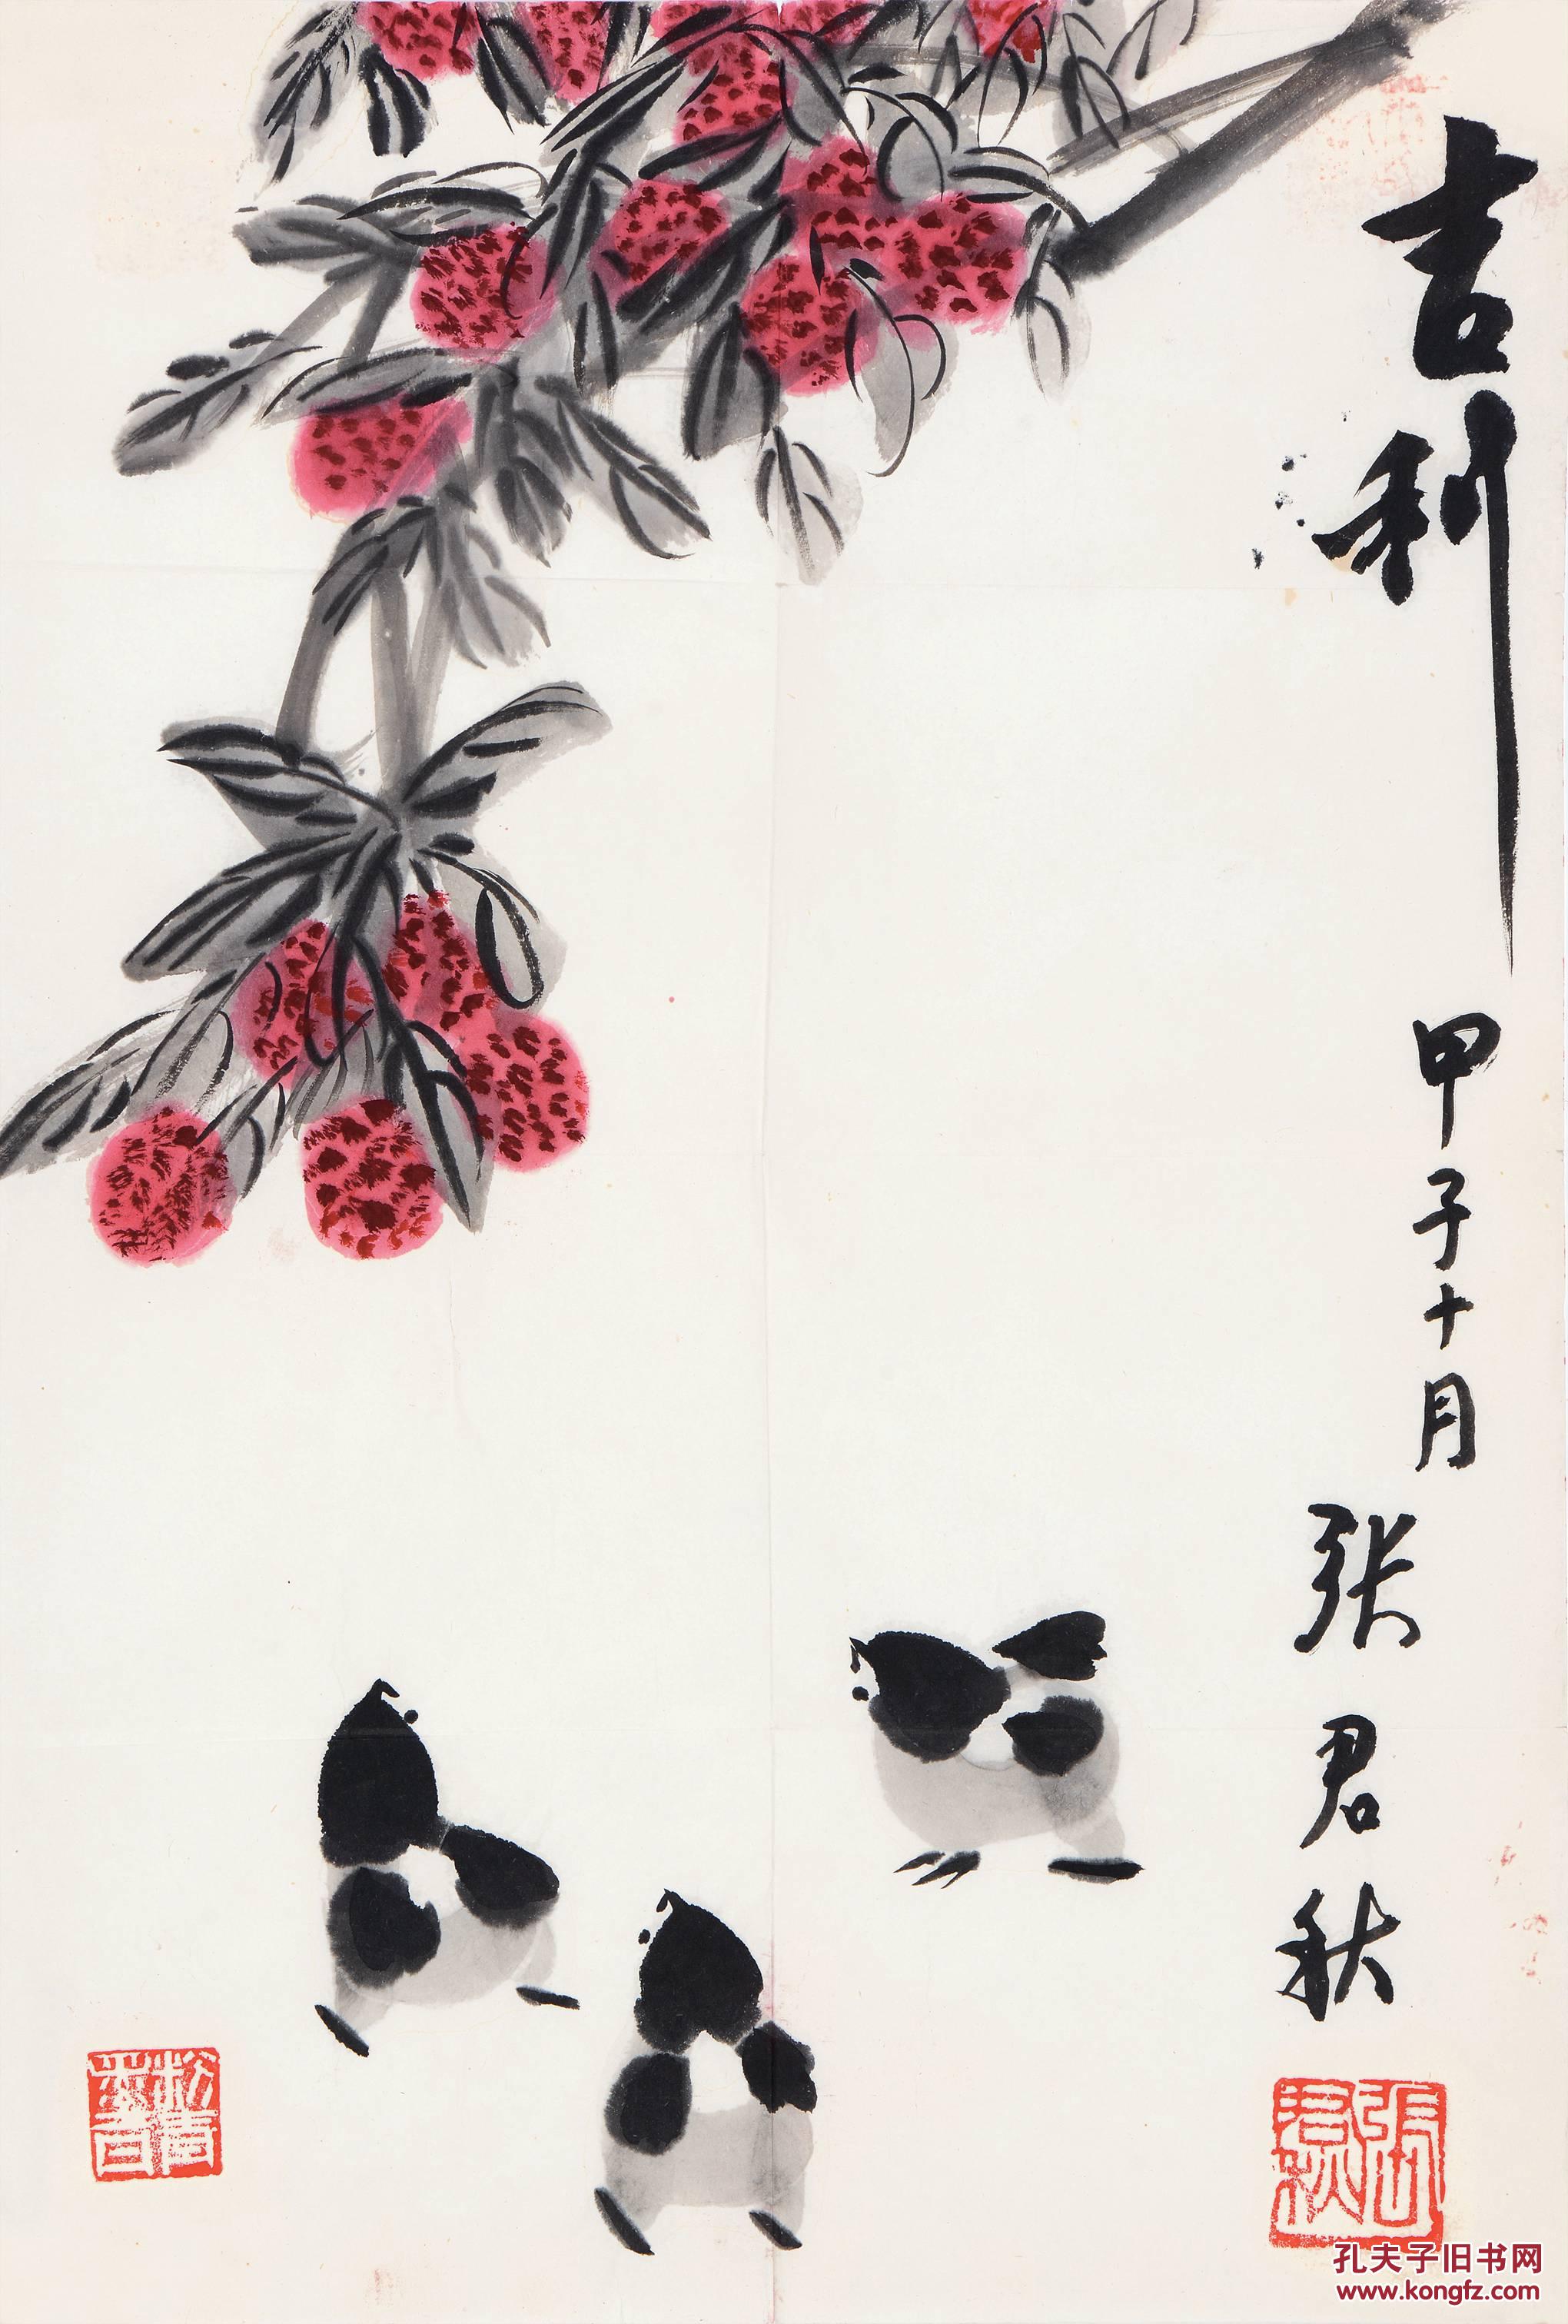 吉利
甲子十月
张君秋
張君秋
孔夫子旧书网
www.kongfz.com